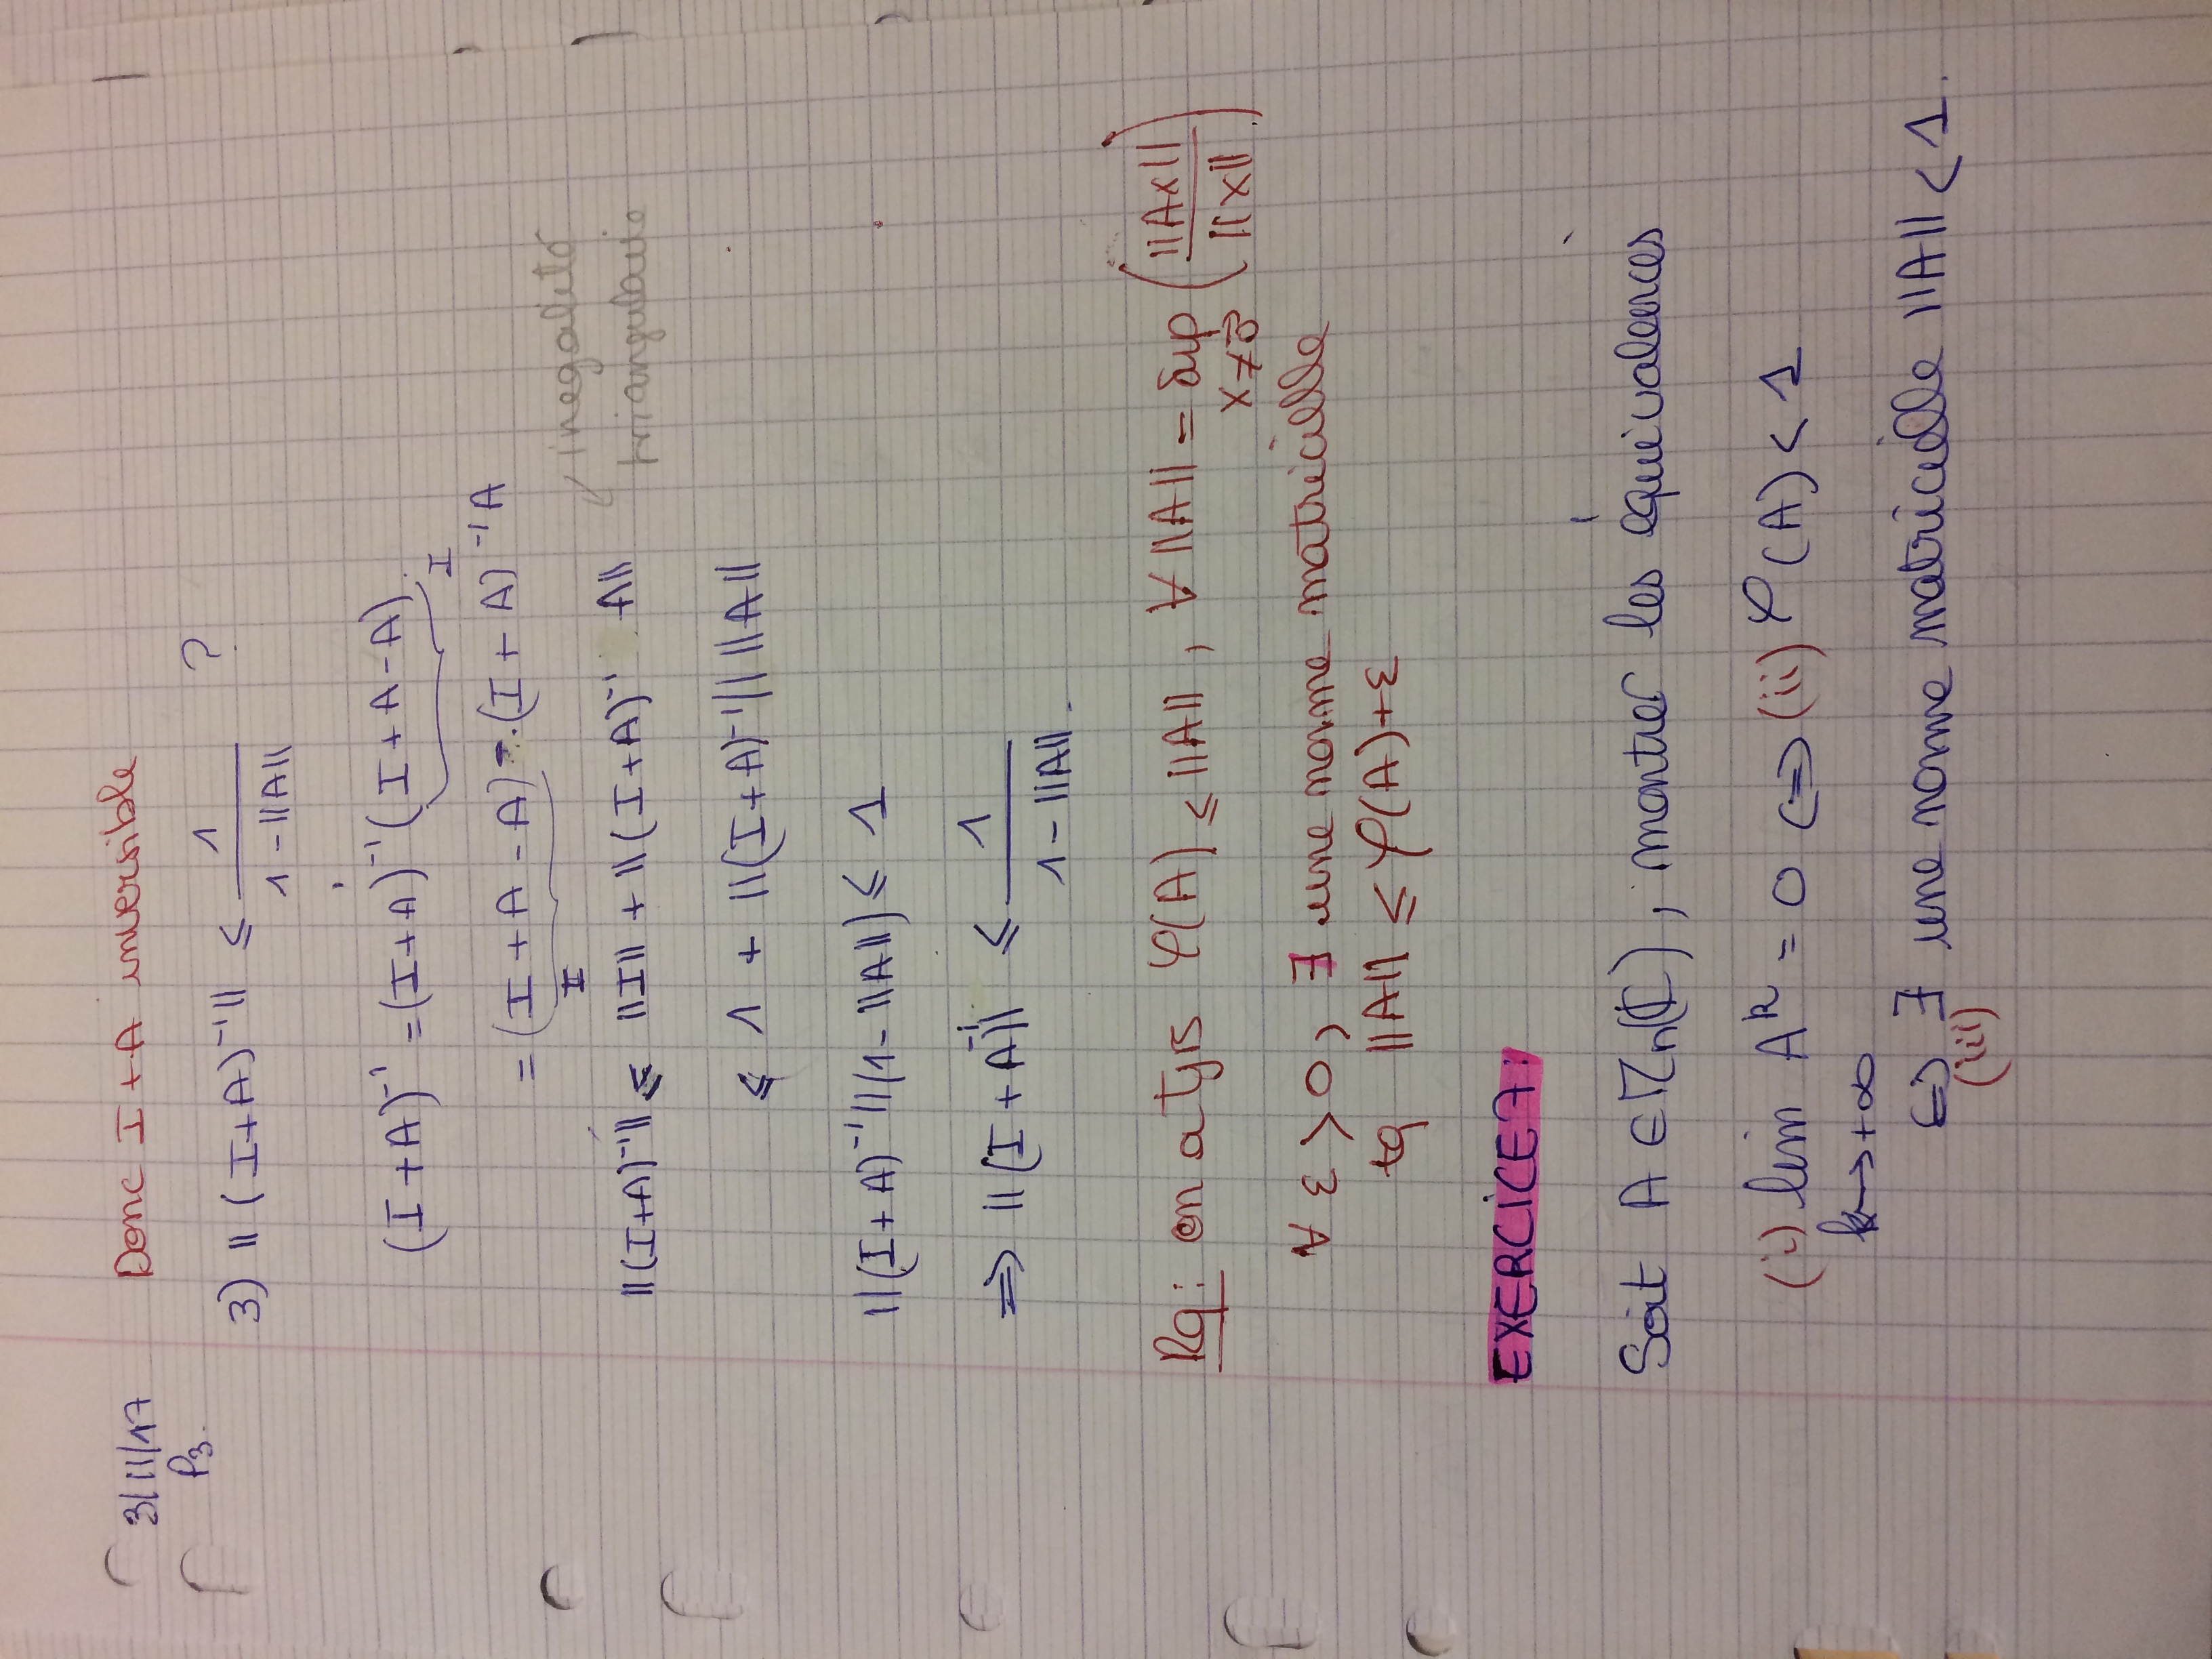 3/11/17 Donc I + A inversible
P3.
3) ‖(I+A)⁻¹‖ ≤ 1 / (1 - ‖A‖) ?
(I + A)⁻¹ = (I + A)⁻¹ (I + A - A)
I
= (I + A - A) - (I + A)⁻¹ A
I
inegalité
‖(I+A)⁻¹‖ ≤ ‖I‖ + ‖(I+A)⁻¹ A‖
triangulaire
≤ 1 + ‖(I+A)⁻¹‖ ‖A‖
‖(I+A)⁻¹‖(1 - ‖A‖) ≤ 1
⇒ ‖(I + A)⁻¹‖ ≤ 1 / (1 - ‖A‖).
Rq: on a tjrs φ(A) ≤ ‖A‖, ∀ ‖A‖ = sup (‖Ax‖ / ‖x‖)
x≠0⃗
∀ ε > 0, ∃ une norme matricielle
tq ‖A‖ ≤ φ(A)+ε
EXERCICE 7:
Soit A ∈ Mn(ℂ), montrer les équivalences
(i) lim Aᵏ = 0 ⇔ (ii) φ(A) < 1
k→+∞
⇔ ∃ une norme matricielle ‖A‖ < 1.
(iii)